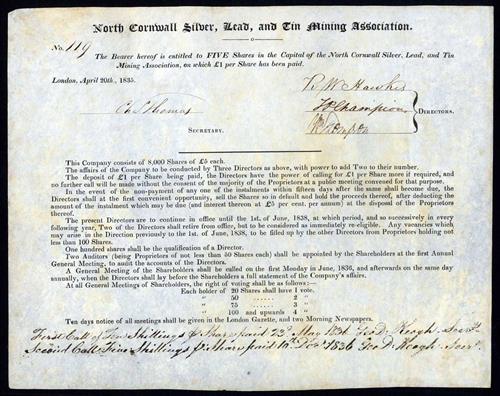 North Cornwall Silver, Lead, and Tin Mining Association.
No. 119
The Bearer hereof is entitled to FIVE Shares in the Capital of the North Cornwall Silver, Lead, and Tin
Mining Association, on which £1 per Share has been paid.
London, April 20th, 1835.
R W Hawker
Champion
DIRECTORS.
Thomas
SECRETARY.
This Company consists of 8,000 Shares of £5 each.
The affairs of the Company to be conducted by Three Directors as above, with power to add Two to their number.
The deposit of £1 per Share being paid, the Directors have the power of calling for £1 per Share more if required, and
no further call will be made without the consent of the majority of the Proprietors at a public meeting convened for that purpose.
In the event of the non-payment of any one of the instalments within fifteen days after the same shall become due, the
Directors shall at the first convenient opportunity, sell the Shares so in default and hold the proceeds thereof, after deducting the
amount of the instalment which may be due (and interest thereon at £5 per cent. per annum) at the disposal of the Proprietors
thereof.
The present Directors are to continue in office until the 1st. of June, 1838, at which period, and so successively in every
following year, Two of the Directors shall retire from office, but to be considered as immediately re-eligible. Any vacancies which
may arise in the Direction previously to the 1st. of June, 1838, to be filled up by the other Directors from Proprietors holding not
less than 100 Shares.
One hundred shares shall be the qualification of a Director.
Two Auditors (being Proprietors of not less than 50 Shares each) shall be appointed by the Shareholders at the first Annual
General Meeting, to audit the accounts of the Directors.
A General Meeting of the Shareholders shall be called on the first Monday in June, 1836, and afterwards on the same day
annually, when the Directors shall lay before the Shareholders a full statement of the Company's affairs.
At all General Meetings of Shareholders, the right of voting shall be as follow:—
Each holder of 20 Shares shall have 1 vote.
" 50 ...... 2 "
" 75 ...... 3 "
" 100 and upwards 4 "
Ten days notice of all meetings shall be given in the London Gazette, and two Morning Newspapers.
First Call of Five Shillings p Share paid 23d May 1836 Geo D. Keogh Secry.
Second Call Five Shillings p Share paid Decr 1836 Geo D. Keogh Secry.